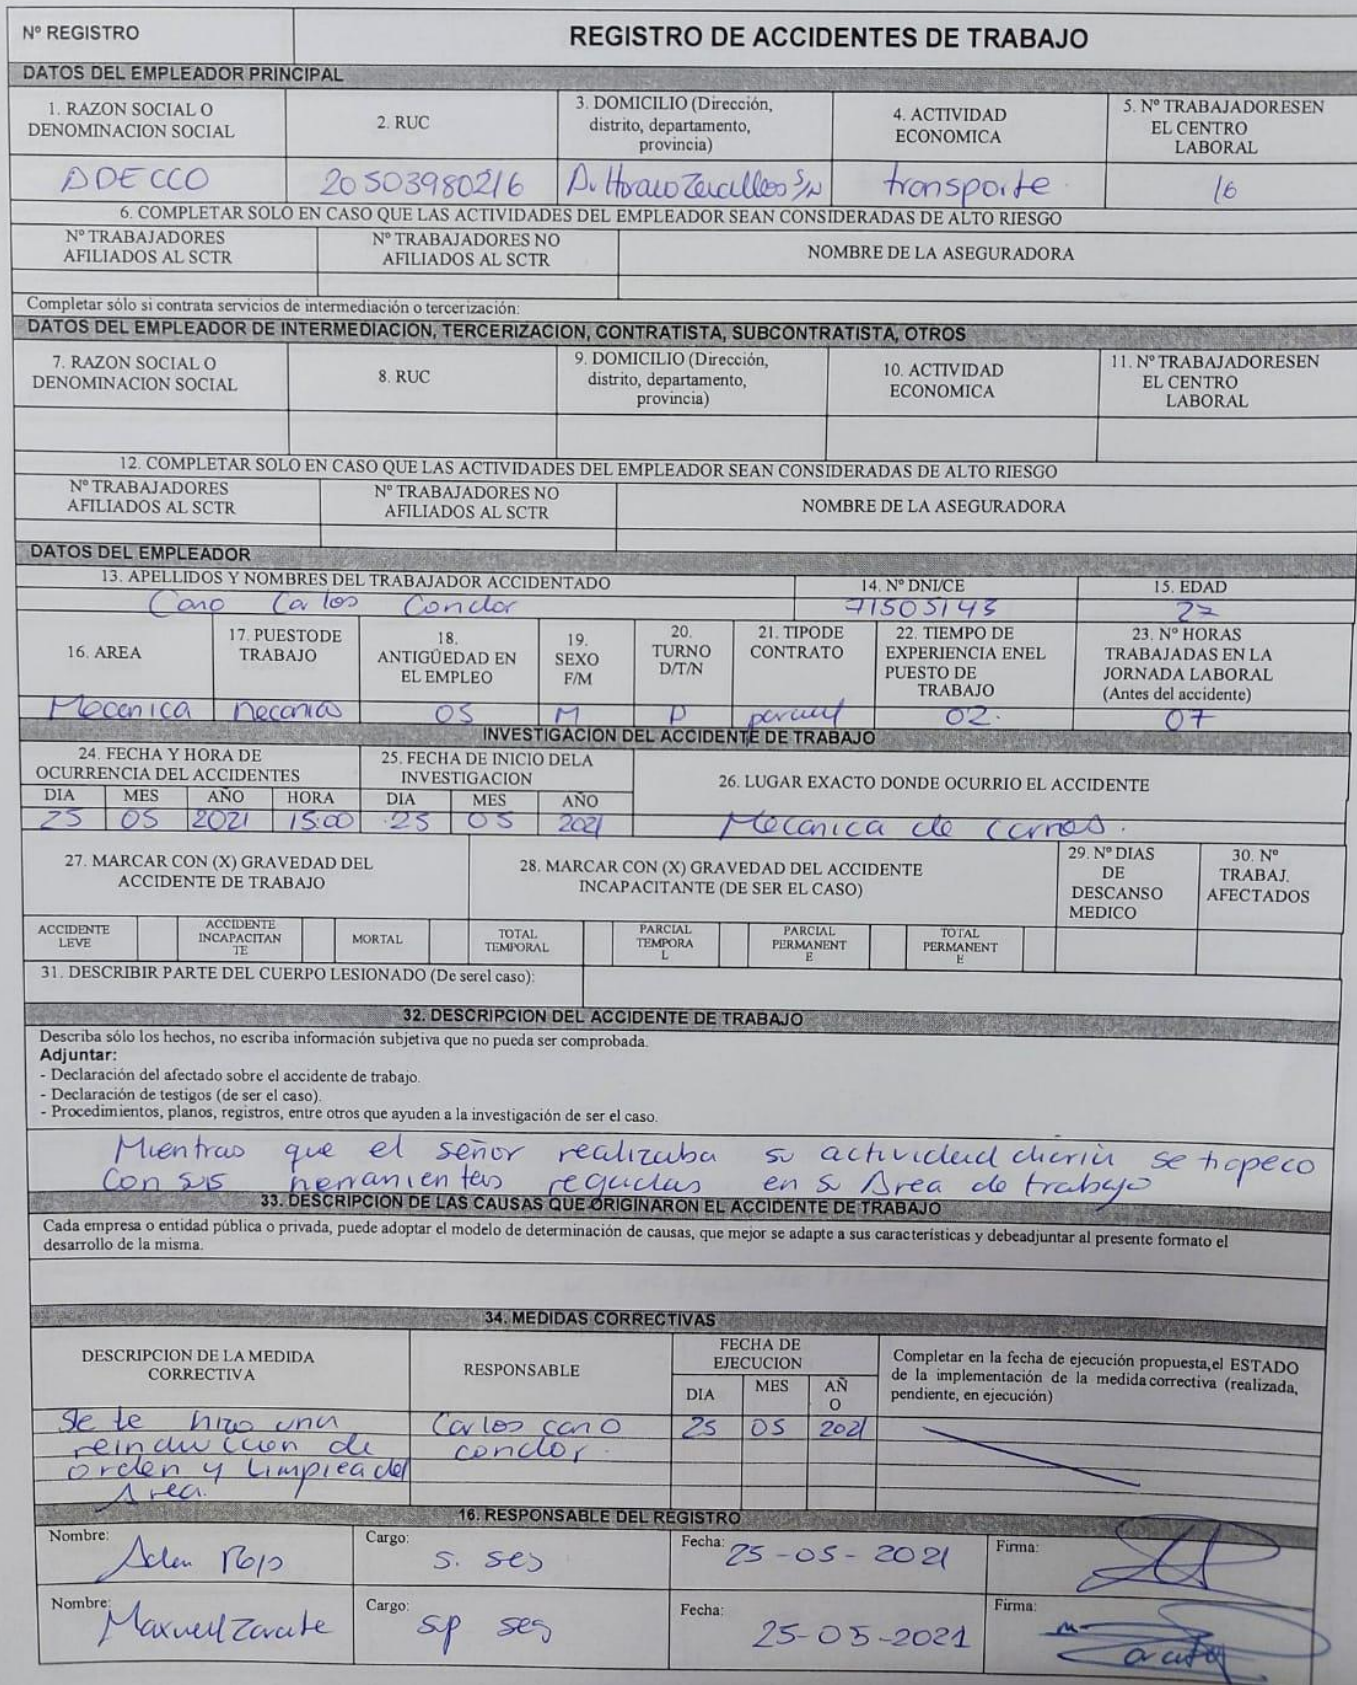 Nº REGISTRO
REGISTRO DE ACCIDENTES DE TRABAJO
DATOS DEL EMPLEADOR PRINCIPAL
1. RAZON SOCIAL O
DENOMINACION SOCIAL
2. RUC
3. DOMICILIO (Dirección,
distrito, departamento,
provincia)
4. ACTIVIDAD
ECONOMICA
5. Nº TRABAJADORESEN
EL CENTRO
LABORAL
ADECCO
20503980216
Av Horacio Zevallos S/N
transporte
16
6. COMPLETAR SOLO EN CASO QUE LAS ACTIVIDADES DEL EMPLEADOR SEAN CONSIDERADAS DE ALTO RIESGO
Nº TRABAJADORES
AFILIADOS AL SCTR
Nº TRABAJADORES NO
AFILIADOS AL SCTR
NOMBRE DE LA ASEGURADORA
Completar sólo si contrata servicios de intermediación o tercerización:
DATOS DEL EMPLEADOR DE INTERMEDIACION, TERCERIZACION, CONTRATISTA, SUBCONTRATISTA, OTROS
7. RAZON SOCIAL O
DENOMINACION SOCIAL
8. RUC
9. DOMICILIO (Dirección,
distrito, departamento,
provincia)
10. ACTIVIDAD
ECONOMICA
11. Nº TRABAJADORESEN
EL CENTRO
LABORAL
12. COMPLETAR SOLO EN CASO QUE LAS ACTIVIDADES DEL EMPLEADOR SEAN CONSIDERADAS DE ALTO RIESGO
Nº TRABAJADORES
AFILIADOS AL SCTR
Nº TRABAJADORES NO
AFILIADOS AL SCTR
NOMBRE DE LA ASEGURADORA
DATOS DEL EMPLEADOR
13. APELLIDOS Y NOMBRES DEL TRABAJADOR ACCIDENTADO
14. Nº DNI/CE
15. EDAD
Cano Carlos Condor
71505143
27
16. AREA
17. PUESTODE
TRABAJO
18.
ANTIGÜEDAD EN
EL EMPLEO
19.
SEXO
F/M
20.
TURNO
D/T/N
21. TIPODE
CONTRATO
22. TIEMPO DE
EXPERIENCIA ENEL
PUESTO DE
TRABAJO
23. Nº HORAS
TRABAJADAS EN LA
JORNADA LABORAL
(Antes del accidente)
Mecanica
05
M
D
02.
07
INVESTIGACION DEL ACCIDENTE DE TRABAJO
24. FECHA Y HORA DE
OCURRENCIA DEL ACCIDENTES
25. FECHA DE INICIO DELA
INVESTIGACION
26. LUGAR EXACTO DONDE OCURRIO EL ACCIDENTE
DIA MES AÑO HORA DIA MES AÑO
25 05 2021 15:00 25 05 2021
Mecanica de carros.
27. MARCAR CON (X) GRAVEDAD DEL
ACCIDENTE DE TRABAJO
28. MARCAR CON (X) GRAVEDAD DEL ACCIDENTE
INCAPACITANTE (DE SER EL CASO)
29. Nº DIAS
DE
DESCANSO
MEDICO
30. Nº
TRABAJ.
AFECTADOS
ACCIDENTE
LEVE
ACCIDENTE
INCAPACITAN
TE
MORTAL
TOTAL
TEMPORAL
PARCIAL
TEMPORA
L
PARCIAL
PERMANENT
E
TOTAL
PERMANENT
E
31. DESCRIBIR PARTE DEL CUERPO LESIONADO (De serel caso):
32. DESCRIPCION DEL ACCIDENTE DE TRABAJO
Describa sólo los hechos, no escriba información subjetiva que no pueda ser comprobada.
Adjuntar:
- Declaración del afectado sobre el accidente de trabajo.
- Declaración de testigos (de ser el caso).
- Procedimientos, planos, registros, entre otros que ayuden a la investigación de ser el caso.
Mientras que el señor realizaba su actividad diaria se tropeco
con sus herramientas regadas en su Area de trabajo
33. DESCRIPCION DE LAS CAUSAS QUE ORIGINARON EL ACCIDENTE DE TRABAJO
Cada empresa o entidad pública o privada, puede adoptar el modelo de determinación de causas, que mejor se adapte a sus características y debeadjuntar al presente formato el
desarrollo de la misma.
34. MEDIDAS CORRECTIVAS
DESCRIPCION DE LA MEDIDA
CORRECTIVA
RESPONSABLE
FECHA DE
EJECUCION
DIA MES AÑ
O
Completar en la fecha de ejecución propuesta,el ESTADO
de la implementación de la medida correctiva (realizada,
pendiente, en ejecución)
Se le hizo una
reinduccion de
orden y limpieza del
Area.
Carlos cano
condor.
25 05 2021
16. RESPONSABLE DEL REGISTRO
Nombre:
Cargo: S. seg
Fecha: 25-05-2021
Firma:
Nombre: Maxwell Zarate
Cargo: sp seg
Fecha: 25-05-2021
Firma: